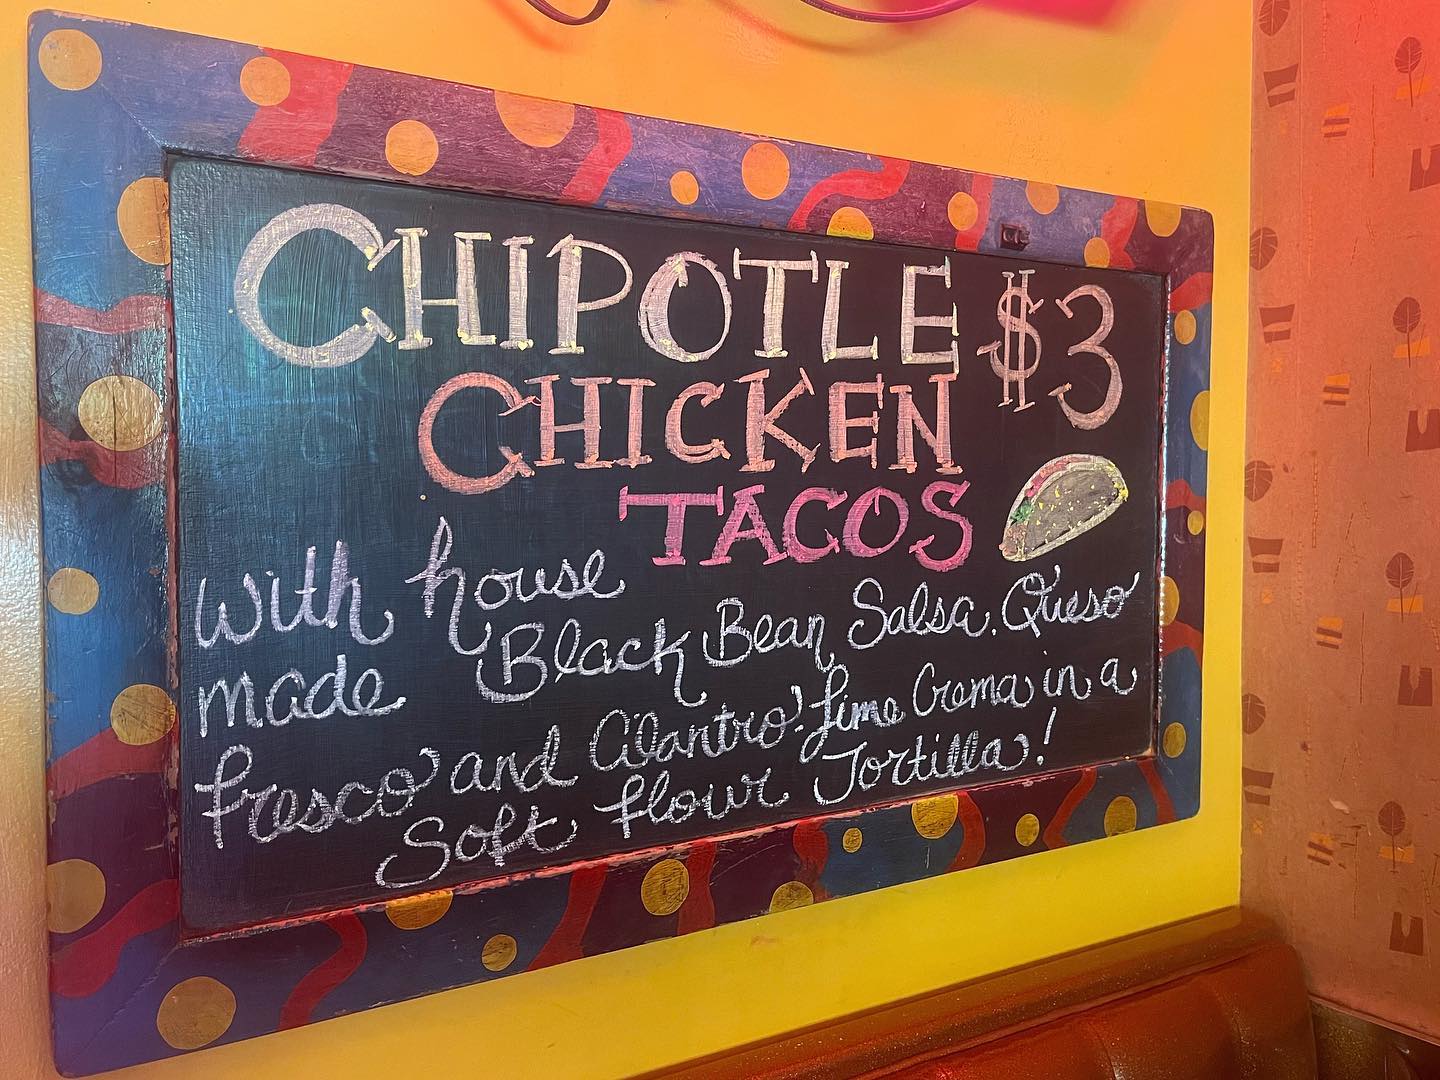 CHIPOTLE $3
CHICKEN
TACOS
with house
made Black Bean Salsa. Queso
fresco and Cilantro-Lime Crema in a
Soft flour Tortilla!